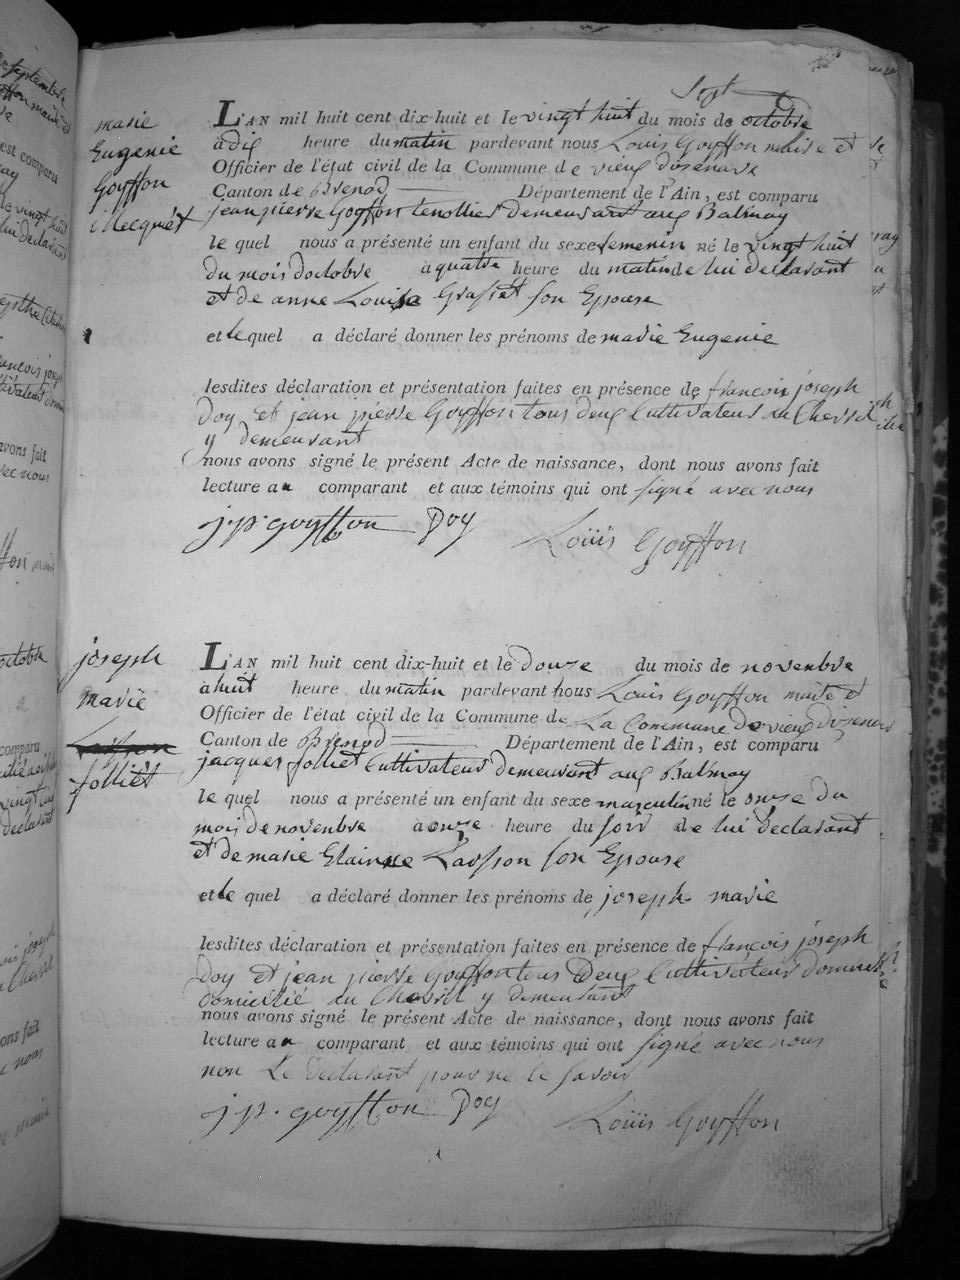 Sept
marie
Eugenie
Goyffon
L'AN mil huit cent dix-huit et le vingt huit du mois de octobre
a dix heure du matin pardevant nous Louis Goyffon maire et
Officier de l'état civil de la Commune de vieu disenave
Canton de Brenod Département de l'Ain, est comparu
jean pierre Goyffon demeurant aux Balmay
le quel nous a présenté un enfant du sexe femenin né le vingt huit
du mois doctobre a quatre heure du matin de lui declarant
et de anne Louise Grassét son Epouse
et le quel a déclaré donner les prénoms de marie Eugenie
lesdites déclaration et présentation faites en présence de francois joseph
Doy et jean pierre Goyffon tous deux Cultivateurs au Chevril
y demeurant
nous avons signé le présent Acte de naissance, dont nous avons fait
lecture au comparant et aux témoins qui ont signé avec nous
j.p. goyffon Doy Louis Goyffon
joseph
marie
jolliét
L'AN mil huit cent dix-huit et le douze du mois de novenbre
a huit heure du matin pardevant nous Louis Goyffon maire et
Officier de l'état civil de la Commune de La Commune de vieu disenave
Canton de Brenod Département de l'Ain, est comparu
jacques jolliet Cultivateur demeurant aux Balmay
le quel nous a présenté un enfant du sexe masculin né le onze du
mois de novenbre a onze heure du soir de lui declarant
et de marie Larsson son Epouse
et le quel a déclaré donner les prénoms de joseph marie
lesdites déclaration et présentation faites en présence de francois joseph
Doy et jean pierre Goyffon tous deux Cultivateurs
domicilié au Chevril y demeurant
nous avons signé le présent Acte de naissance, dont nous avons fait
lecture au comparant et aux témoins qui ont signé avec nous
non Le declarant pour ne le savoir
j.p. goyffon Doy Louis Goyffon